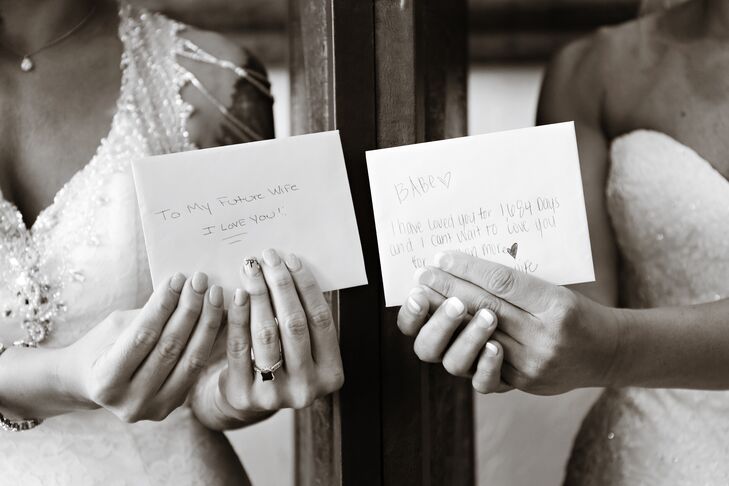 To My Future Wife
I LOVE YOU!!
BABE ♡
I have loved you for 1,684 Days
and I can't wait to Love you
for more ♥